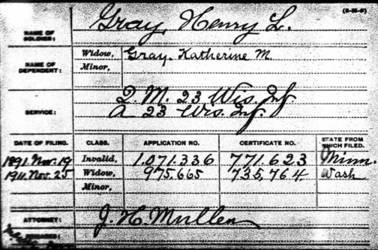 (3-55-8)
NAME OF SOLDIER: Gray, Henry L.
NAME OF DEPENDENT: Widow, Gray, Katherine M.
Minor,
SERVICE: Q.M. 23 Wis. Inf
A 23 Wis. Inf.
DATE OF FILING. CLASS. APPLICATION NO. CERTIFICATE NO. STATE FROM WHICH FILED.
1891. Nov. 19 Invalid, 1.071.336 771.623 Minn.
1911. Nov. 25 Widow, 975.665 735,764 Wash
Minor,
ATTORNEY: J. H. Mullen
REMARKS: